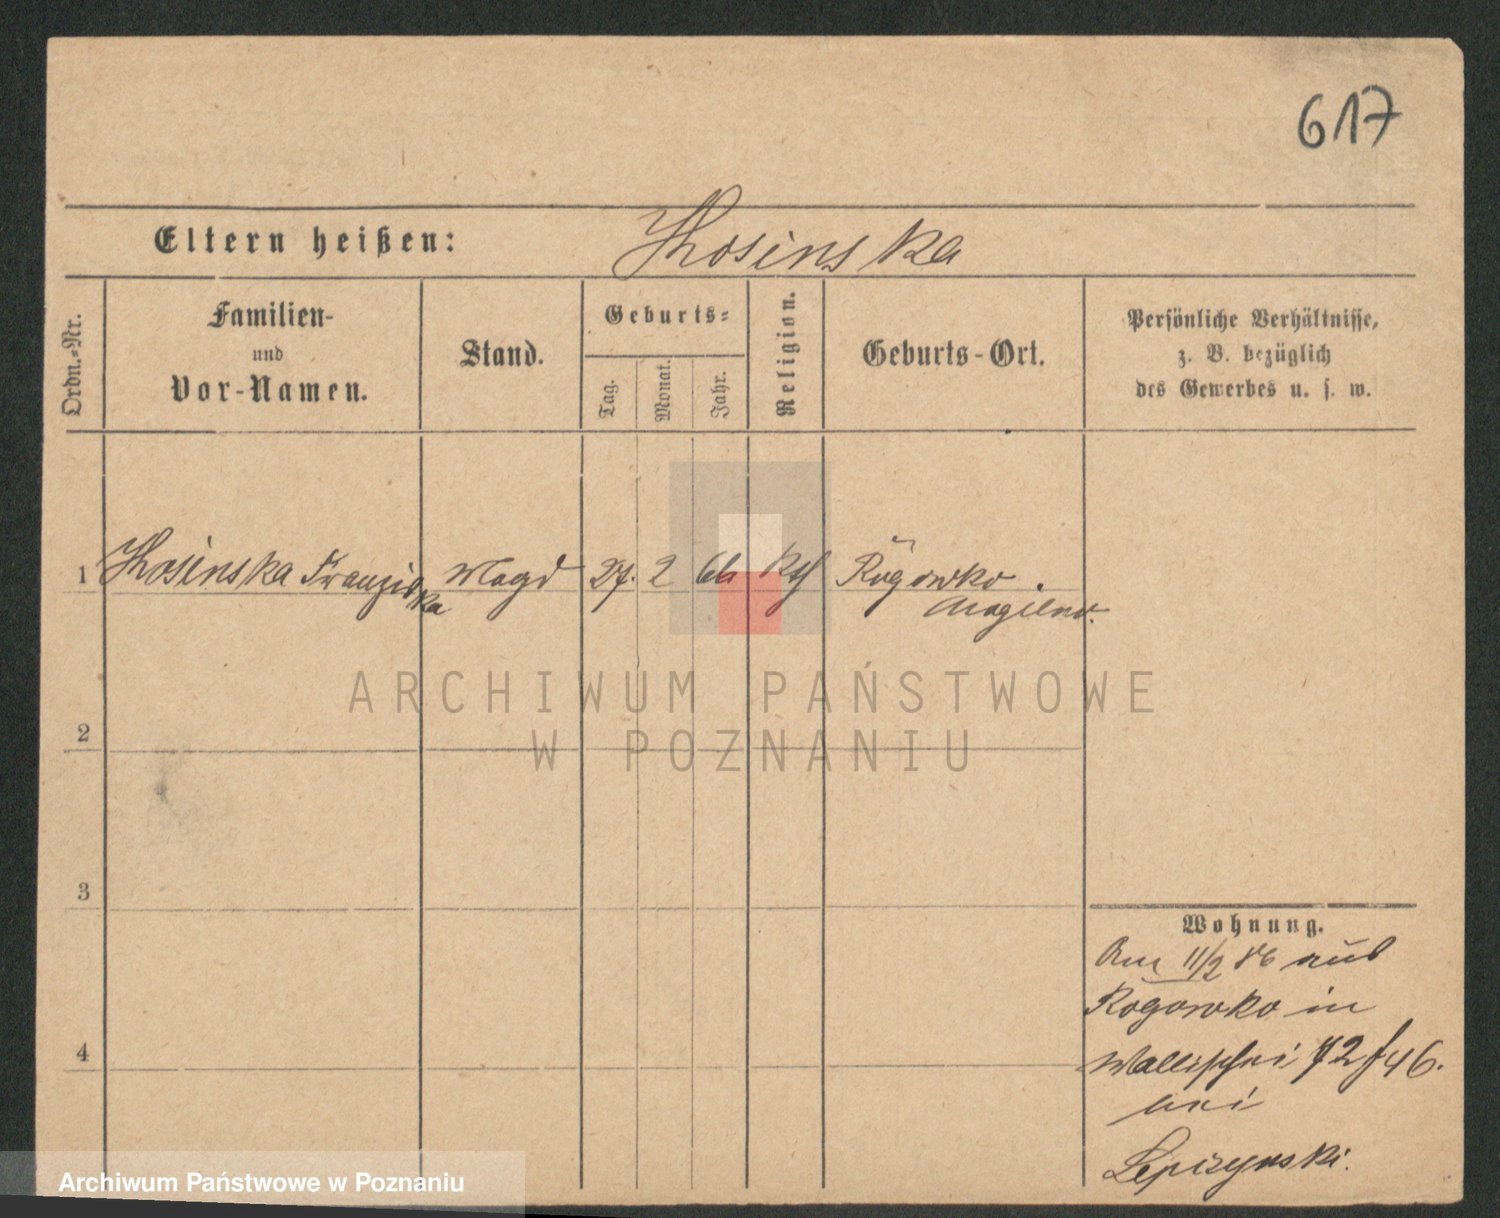 617
Eltern heißen: Kosinska
Ordn.-Nr.
Familien-
und
Vor-Namen.
Stand.
Geburts-
Tag.
Monat.
Jahr.
Religion.
Geburts-Ort.
Persönliche Verhältnisse,
z. B. bezüglich
des Gewerbes u. s. w.
1 Kosinska Franzis Magd 27. 2 66 kth Rogowko
ka Mogilno.
ARCHIWUM PAŃSTWOWE
W POZNANIU
2
3
4
Wohnung.
Am 11/2 86 aus
Rogowko in
Wallischei 72 / 46.
bei
Lepczynski.
Archiwum Państwowe w Poznaniu